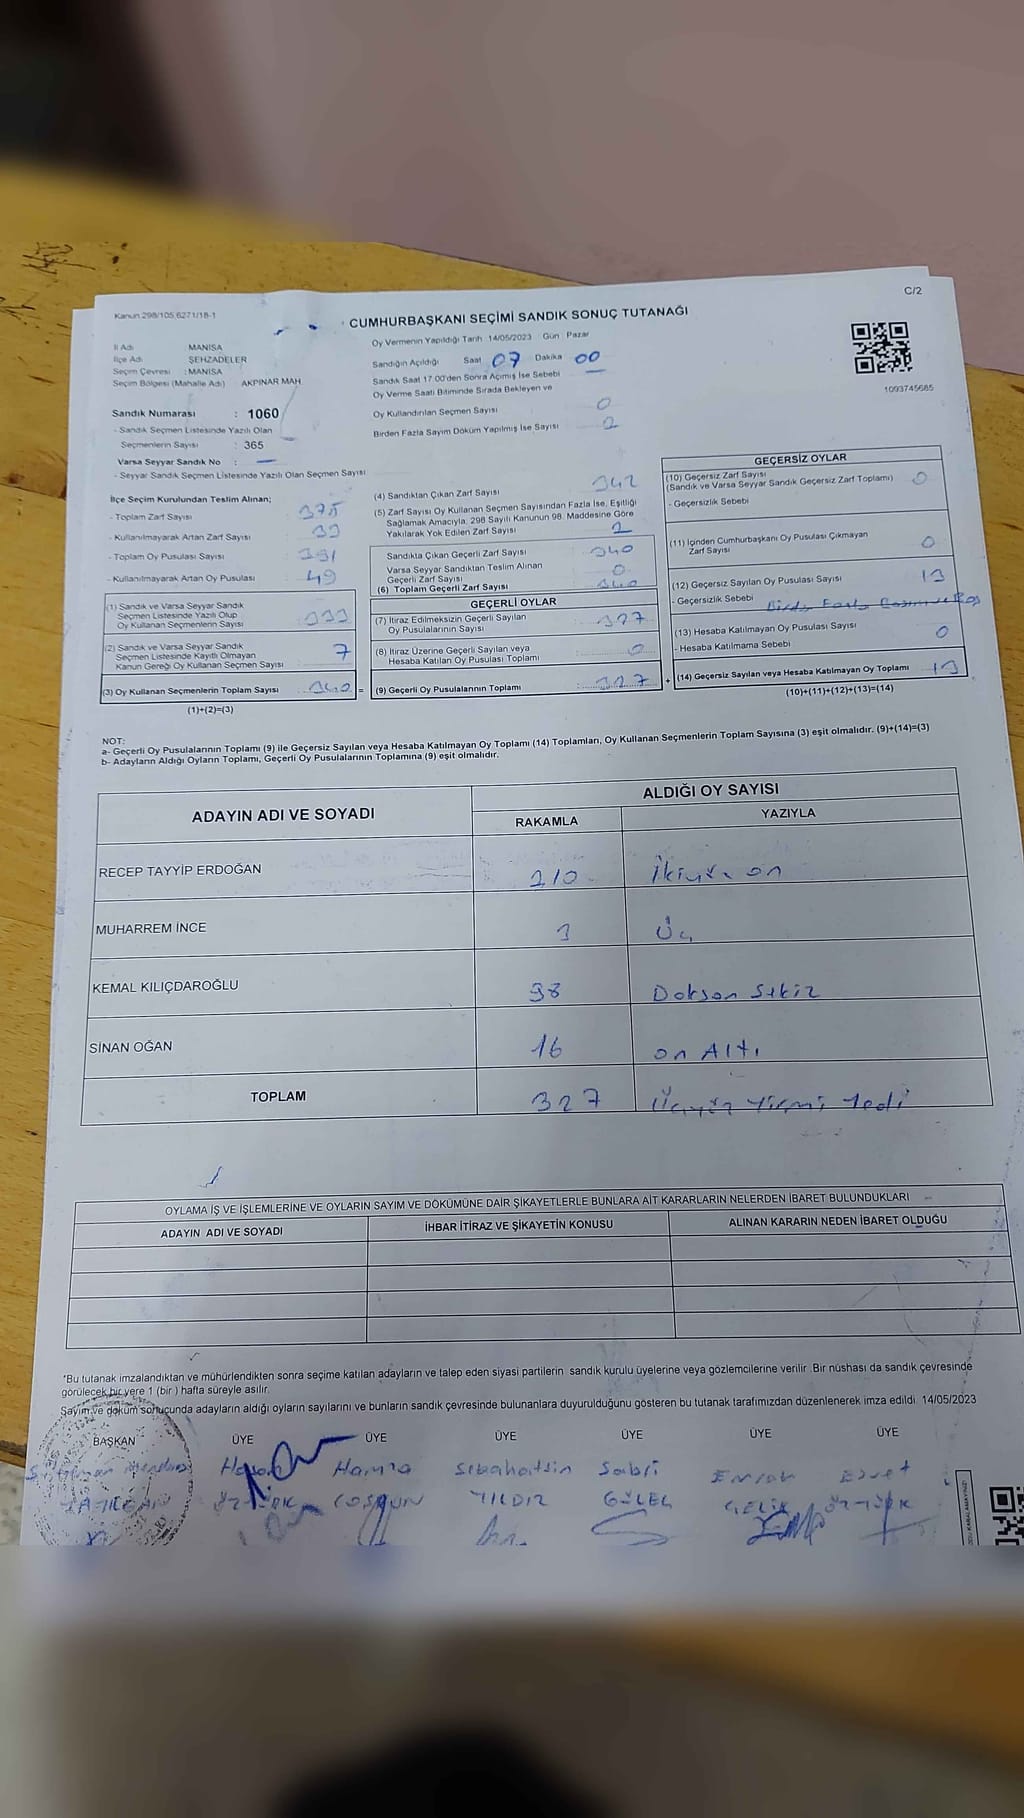 C/2
Kanun:298/105,6271/18-1
CUMHURBAŞKANI SEÇİMİ SANDIK SONUÇ TUTANAĞI
İl Adı MANİSA
İlçe Adı ŞEHZADELER
Seçim Çevresi : MANİSA
Seçim Bölgesi (Mahalle Adı) AKPINAR MAH
Sandık Numarası : 1060
- Sandık Seçmen Listesinde Yazılı Olan
Seçmenlerin Sayısı : 365
Varsa Seyyar Sandık No : —
- Seyyar Sandık Seçmen Listesinde Yazılı Olan Seçmen Sayısı
Oy Vermenin Yapıldığı Tarih 14/05/2023 Gün Pazar
Sandığın Açıldığı Saat 07 Dakika 00
Sandık Saat 17.00'den Sonra Açımış İse Sebebi —
Oy Verme Saati Bitiminde Sırada Bekleyen ve
Oy Kullandırılan Seçmen Sayısı 0
Birden Fazla Sayım Döküm Yapılmış İse Sayısı
1093745685
İlçe Seçim Kurulundan Teslim Alınan;
- Toplam Zarf Sayısı 375
- Kullanılmayarak Artan Zarf Sayısı 33
- Toplam Oy Pusulası Sayısı 391
- Kullanılmayarak Artan Oy Pusulası 49
(1) Sandık ve Varsa Seyyar Sandık
Seçmen Listesinde Yazılı Olup
Oy Kullanan Seçmenlerin Sayısı 333
(2) Sandık ve Varsa Seyyar Sandık
Seçmen Listesinde Kayıtlı Olmayan
Kanun Gereği Oy Kullanan Seçmen Sayısı 7
(3) Oy Kullanan Seçmenlerin Toplam Sayısı 340 =
(1)+(2)=(3)
(4) Sandıktan Çıkan Zarf Sayısı 342
(5) Zarf Sayısı Oy Kullanan Seçmen Sayısından Fazla İse, Eşitliği
Sağlamak Amacıyla, 298 Sayılı Kanunun 98. Maddesine Göre
Yakılarak Yok Edilen Zarf Sayısı 2
Sandıkta Çıkan Geçerli Zarf Sayısı 340
Varsa Seyyar Sandıktan Teslim Alınan
Geçerli Zarf Sayısı 0
(6) Toplam Geçerli Zarf Sayısı 340
GEÇERLİ OYLAR
(7) İtiraz Edilmeksizin Geçerli Sayılan
Oy Pusulalarının Sayısı 327
(8) İtiraz Üzerine Geçerli Sayılan veya
Hesaba Katılan Oy Pusulası Toplamı 0
(9) Geçerli Oy Pusulalarının Toplamı 327 +
GEÇERSİZ OYLAR
(10) Geçersiz Zarf Sayısı
(Sandık ve Varsa Seyyar Sandık Geçersiz Zarf Toplamı) 0
- Geçersizlik Sebebi
(11) İçinden Cumhurbaşkanı Oy Pusulası Çıkmayan
Zarf Sayısı 0
(12) Geçersiz Sayılan Oy Pusulası Sayısı 13
- Geçersizlik Sebebi
(13) Hesaba Katılmayan Oy Pusulası Sayısı 0
- Hesaba Katılmama Sebebi
(14) Geçersiz Sayılan veya Hesaba Katılmayan Oy Toplamı 13
(10)+(11)+(12)+(13)=(14)
NOT:
a- Geçerli Oy Pusulalarının Toplamı (9) ile Geçersiz Sayılan veya Hesaba Katılmayan Oy Toplamı (14) Toplamları, Oy Kullanan Seçmenlerin Toplam Sayısına (3) eşit olmalıdır. (9)+(14)=(3)
b- Adayların Aldığı Oyların Toplamı, Geçerli Oy Pusulalarının Toplamına (9) eşit olmalıdır.
ADAYIN ADI VE SOYADI
ALDIĞI OY SAYISI
RAKAMLA YAZIYLA
RECEP TAYYİP ERDOĞAN 210 İkiyüz on
MUHARREM İNCE 3 Üç
KEMAL KILIÇDAROĞLU 98 Doksan Sekiz
SİNAN OĞAN 16 on Altı
TOPLAM 327 Üçyüz Yirmi Yedi
OYLAMA İŞ VE İŞLEMLERİNE VE OYLARIN SAYIM VE DÖKÜMÜNE DAİR ŞİKAYETLERLE BUNLARA AİT KARARLARIN NELERDEN İBARET BULUNDUKLARI
ADAYIN ADI VE SOYADI İHBAR İTİRAZ VE ŞİKAYETİN KONUSU ALINAN KARARIN NEDEN İBARET OLDUĞU
*Bu tutanak imzalandıktan ve mühürlendikten sonra seçime katılan adayların ve talep eden siyasi partilerin sandık kurulu üyelerine veya gözlemcilerine verilir. Bir nüshası da sandık çevresinde
görülecek bir yere 1 (bir ) hafta süreyle asılır.
Sayım ve döküm sonucunda adayların aldığı oyların sayılarını ve bunların sandık çevresinde bulunanlara duyurulduğunu gösteren bu tutanak tarafımızdan düzenlenerek imza edildi. 14/05/2023
BAŞKAN ÜYE ÜYE ÜYE ÜYE ÜYE ÜYE
Hasan Hamza Sebahattin Sabri
ÖZTÜRK COŞGUN YILDIZ GÜLEÇ ÇELİK ÖZTÜRK